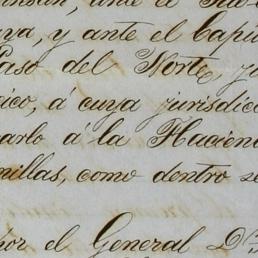 ante el
y ante el Capi
Paso del Norte, y
ico, á cuya jurisdicc
arlo á la Hacien
millas, como dentro se
por el General D